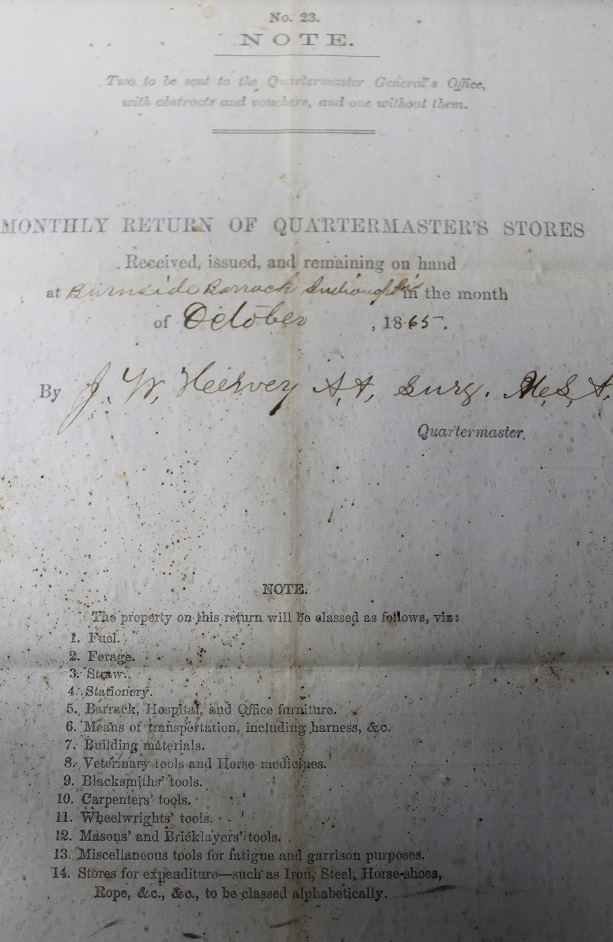 No. 23.
NOTE.
Two to be sent to the Quartermaster General's Office,
with abstracts and vouchers, and one without them.
MONTHLY RETURN OF QUARTERMASTER'S STORES
Received, issued, and remaining on hand
at Burnside Barrack in the month
of October , 1865.
By J. W. Hervey A. A. Surg. U. S. A.
Quartermaster.
NOTE.
The property on this return will be classed as follows, viz:
1. Fuel.
2. Forage.
3. Straw.
4. Stationery.
5. Barrack, Hospital, and Office furniture.
6. Means of transportation, including harness, &c.
7. Building materials.
8. Veterinary tools and Horse medicines.
9. Blacksmiths' tools.
10. Carpenters' tools.
11. Wheelwrights' tools.
12. Masons' and Bricklayers' tools.
13. Miscellaneous tools for fatigue and garrison purposes.
14. Stores for expenditure—such as Iron, Steel, Horse-shoes,
Rope, &c., &c., to be classed alphabetically.